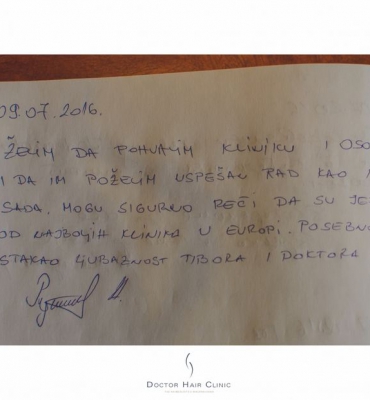 09.07.2016.
ŽELIM DA POHVALIM KLINIKU I OSO
I DA IM POŽELIM USPEŠAN RAD KAO
SADA. MOGU SIGURNO REĆI DA SU JE
OD NAJBOLJIH KLINIKA U EVROPI. POSEBNO
ISTAKAO LJUBAZNOST TIBORA I DOKTORA
DOCTOR HAIR CLINIC